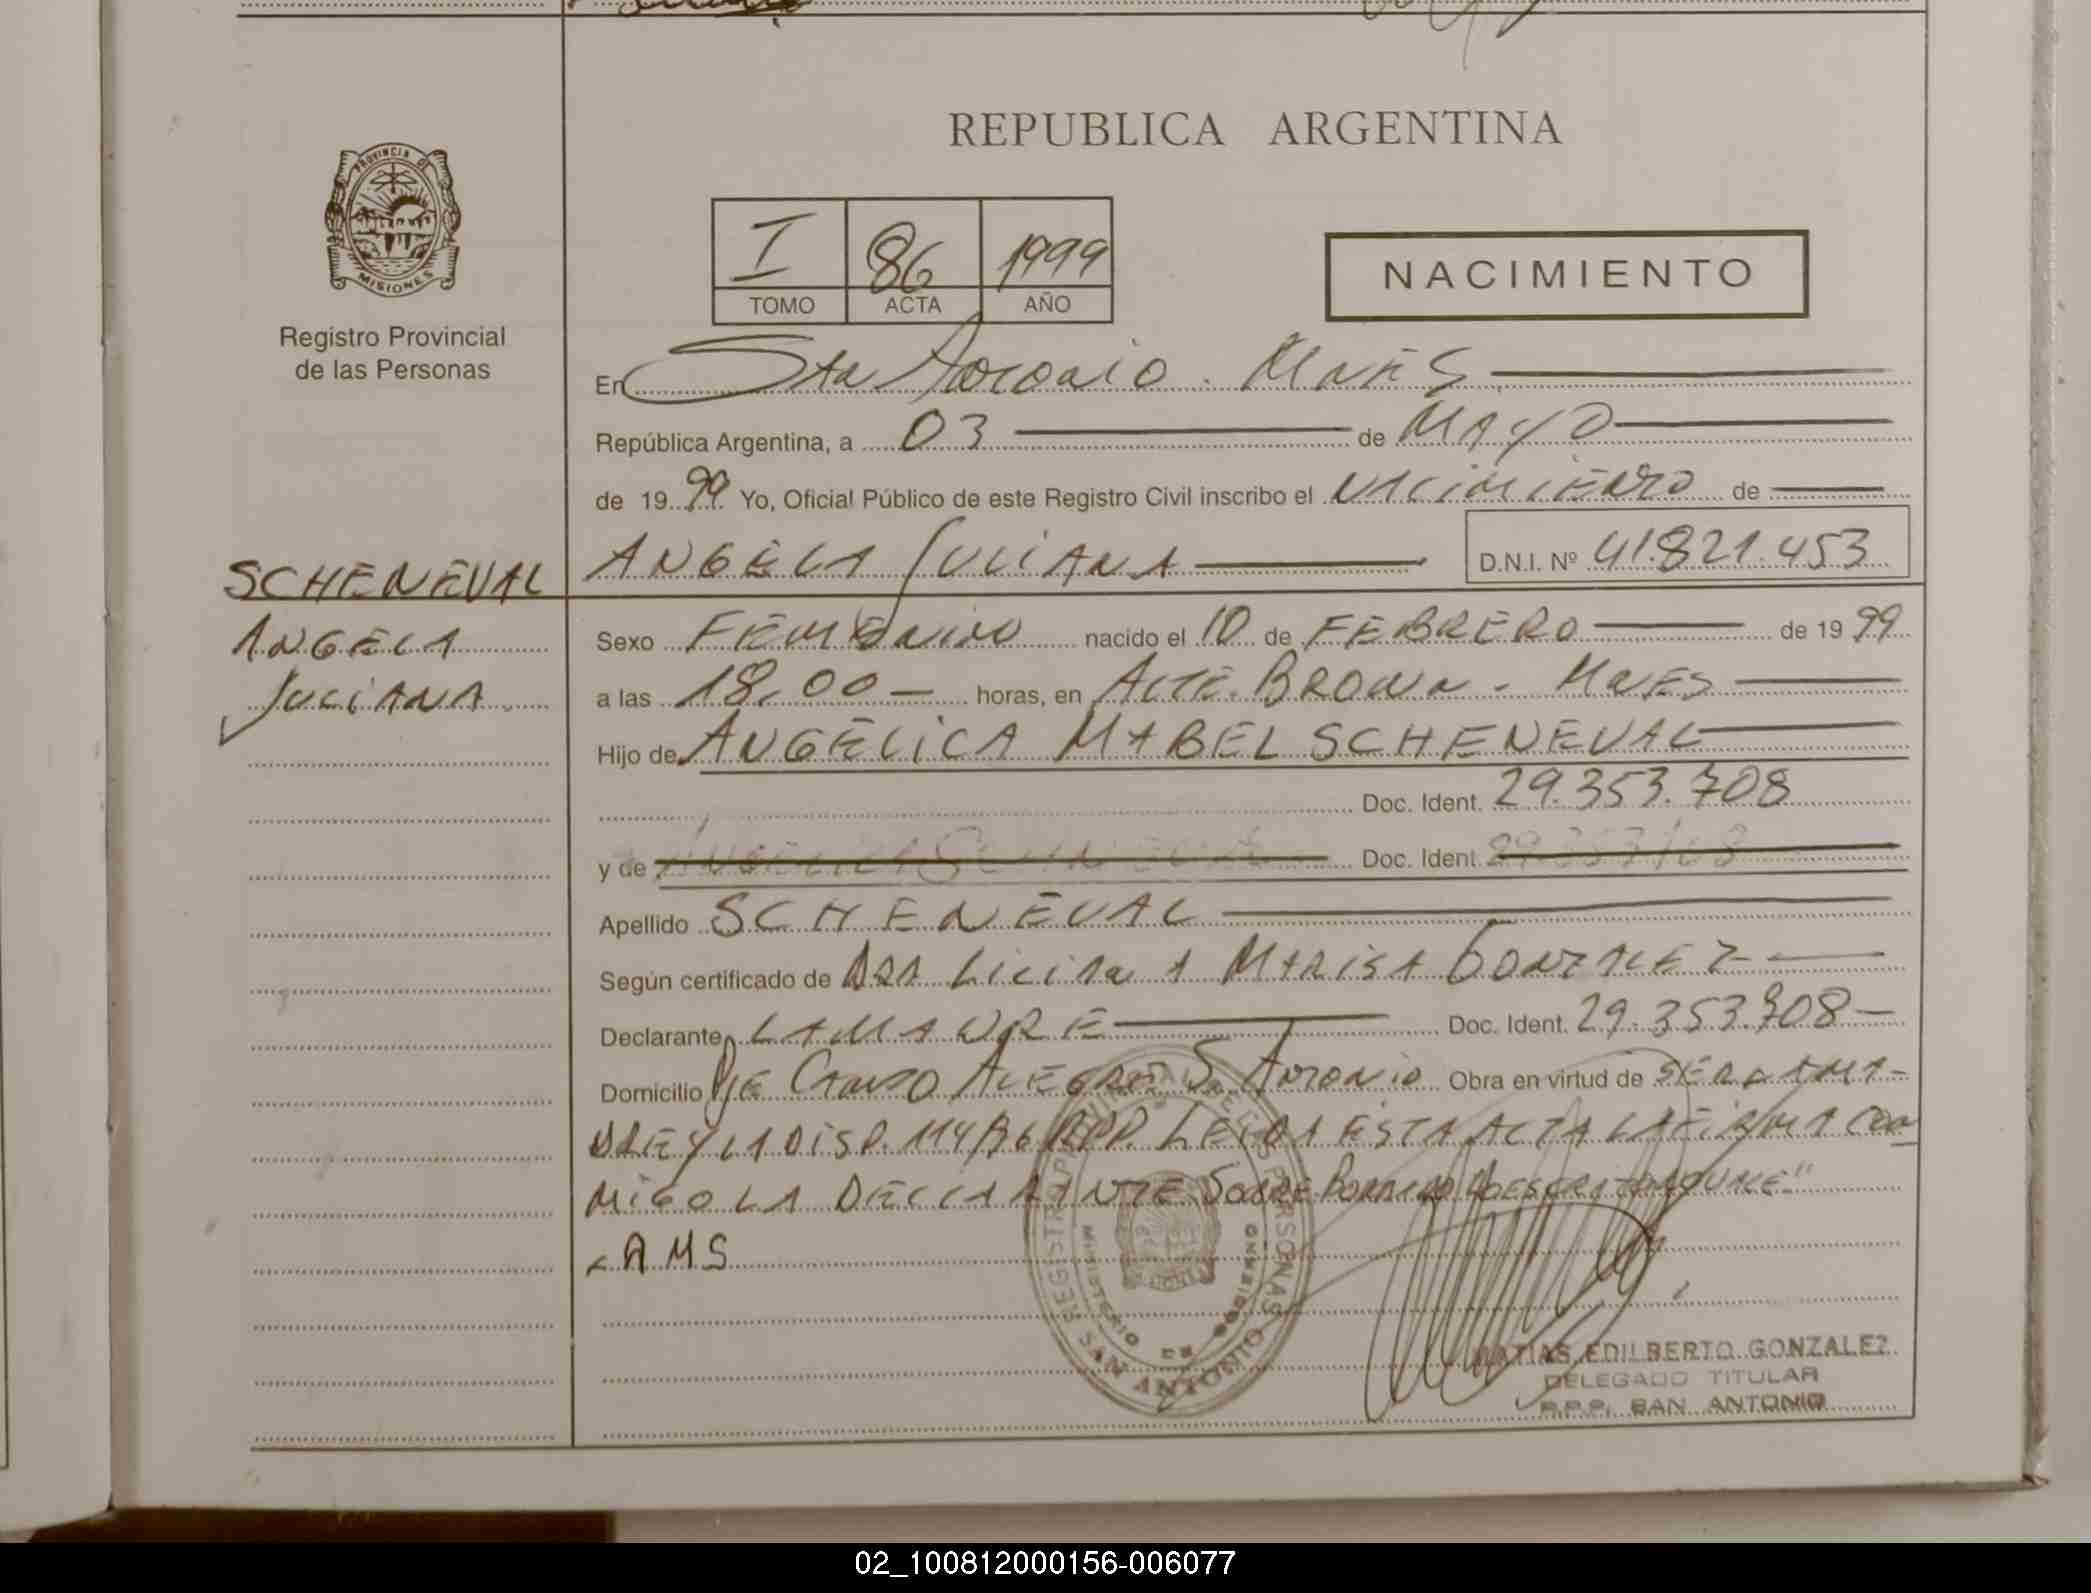 REPUBLICA ARGENTINA
PROVINCIA DE
MISIONES
Registro Provincial
de las Personas
I 86 1999
TOMO ACTA AÑO
NACIMIENTO
En Sta Antonio . Mnes
República Argentina, a 03 de MAYO
de 1999 Yo, Oficial Público de este Registro Civil inscribo el NACIMIENTO de
ANGELA JULIANA D.N.I. Nº 41.821.453
SCHENEVAL
ANGELA
JULIANA
Sexo FEMENINO nacido el 10 de FEBRERO de 1999
a las 18,00 horas, en ALTE. BROWN - MNES
Hijo de ANGELICA MABEL SCHENEVAL
Doc. Ident. 29.353.708
y de Doc. Ident.
Apellido SCHENEVAL
Según certificado de DRA LILIANA MARISA GONZALEZ
Declarante LA MADRE Doc. Ident. 29.353.708
Domicilio PJE CAMPO ALEGRE S. ANTONIO Obra en virtud de SER LA MA-
DRE Y LA DISP. 114/96 RPP. LEIDA ESTA ACTA LA FIRMA CON
MIGO LA DECLARANTE SOBRE BORRADO
AMS
REGISTRO PERSONAS
MINISTERIO DE GOBIERNO
SAN ANTONIO
MATIAS EDILBERTO GONZALEZ
DELEGADO TITULAR
R.P.P. SAN ANTONIO
02_100812000156-006077